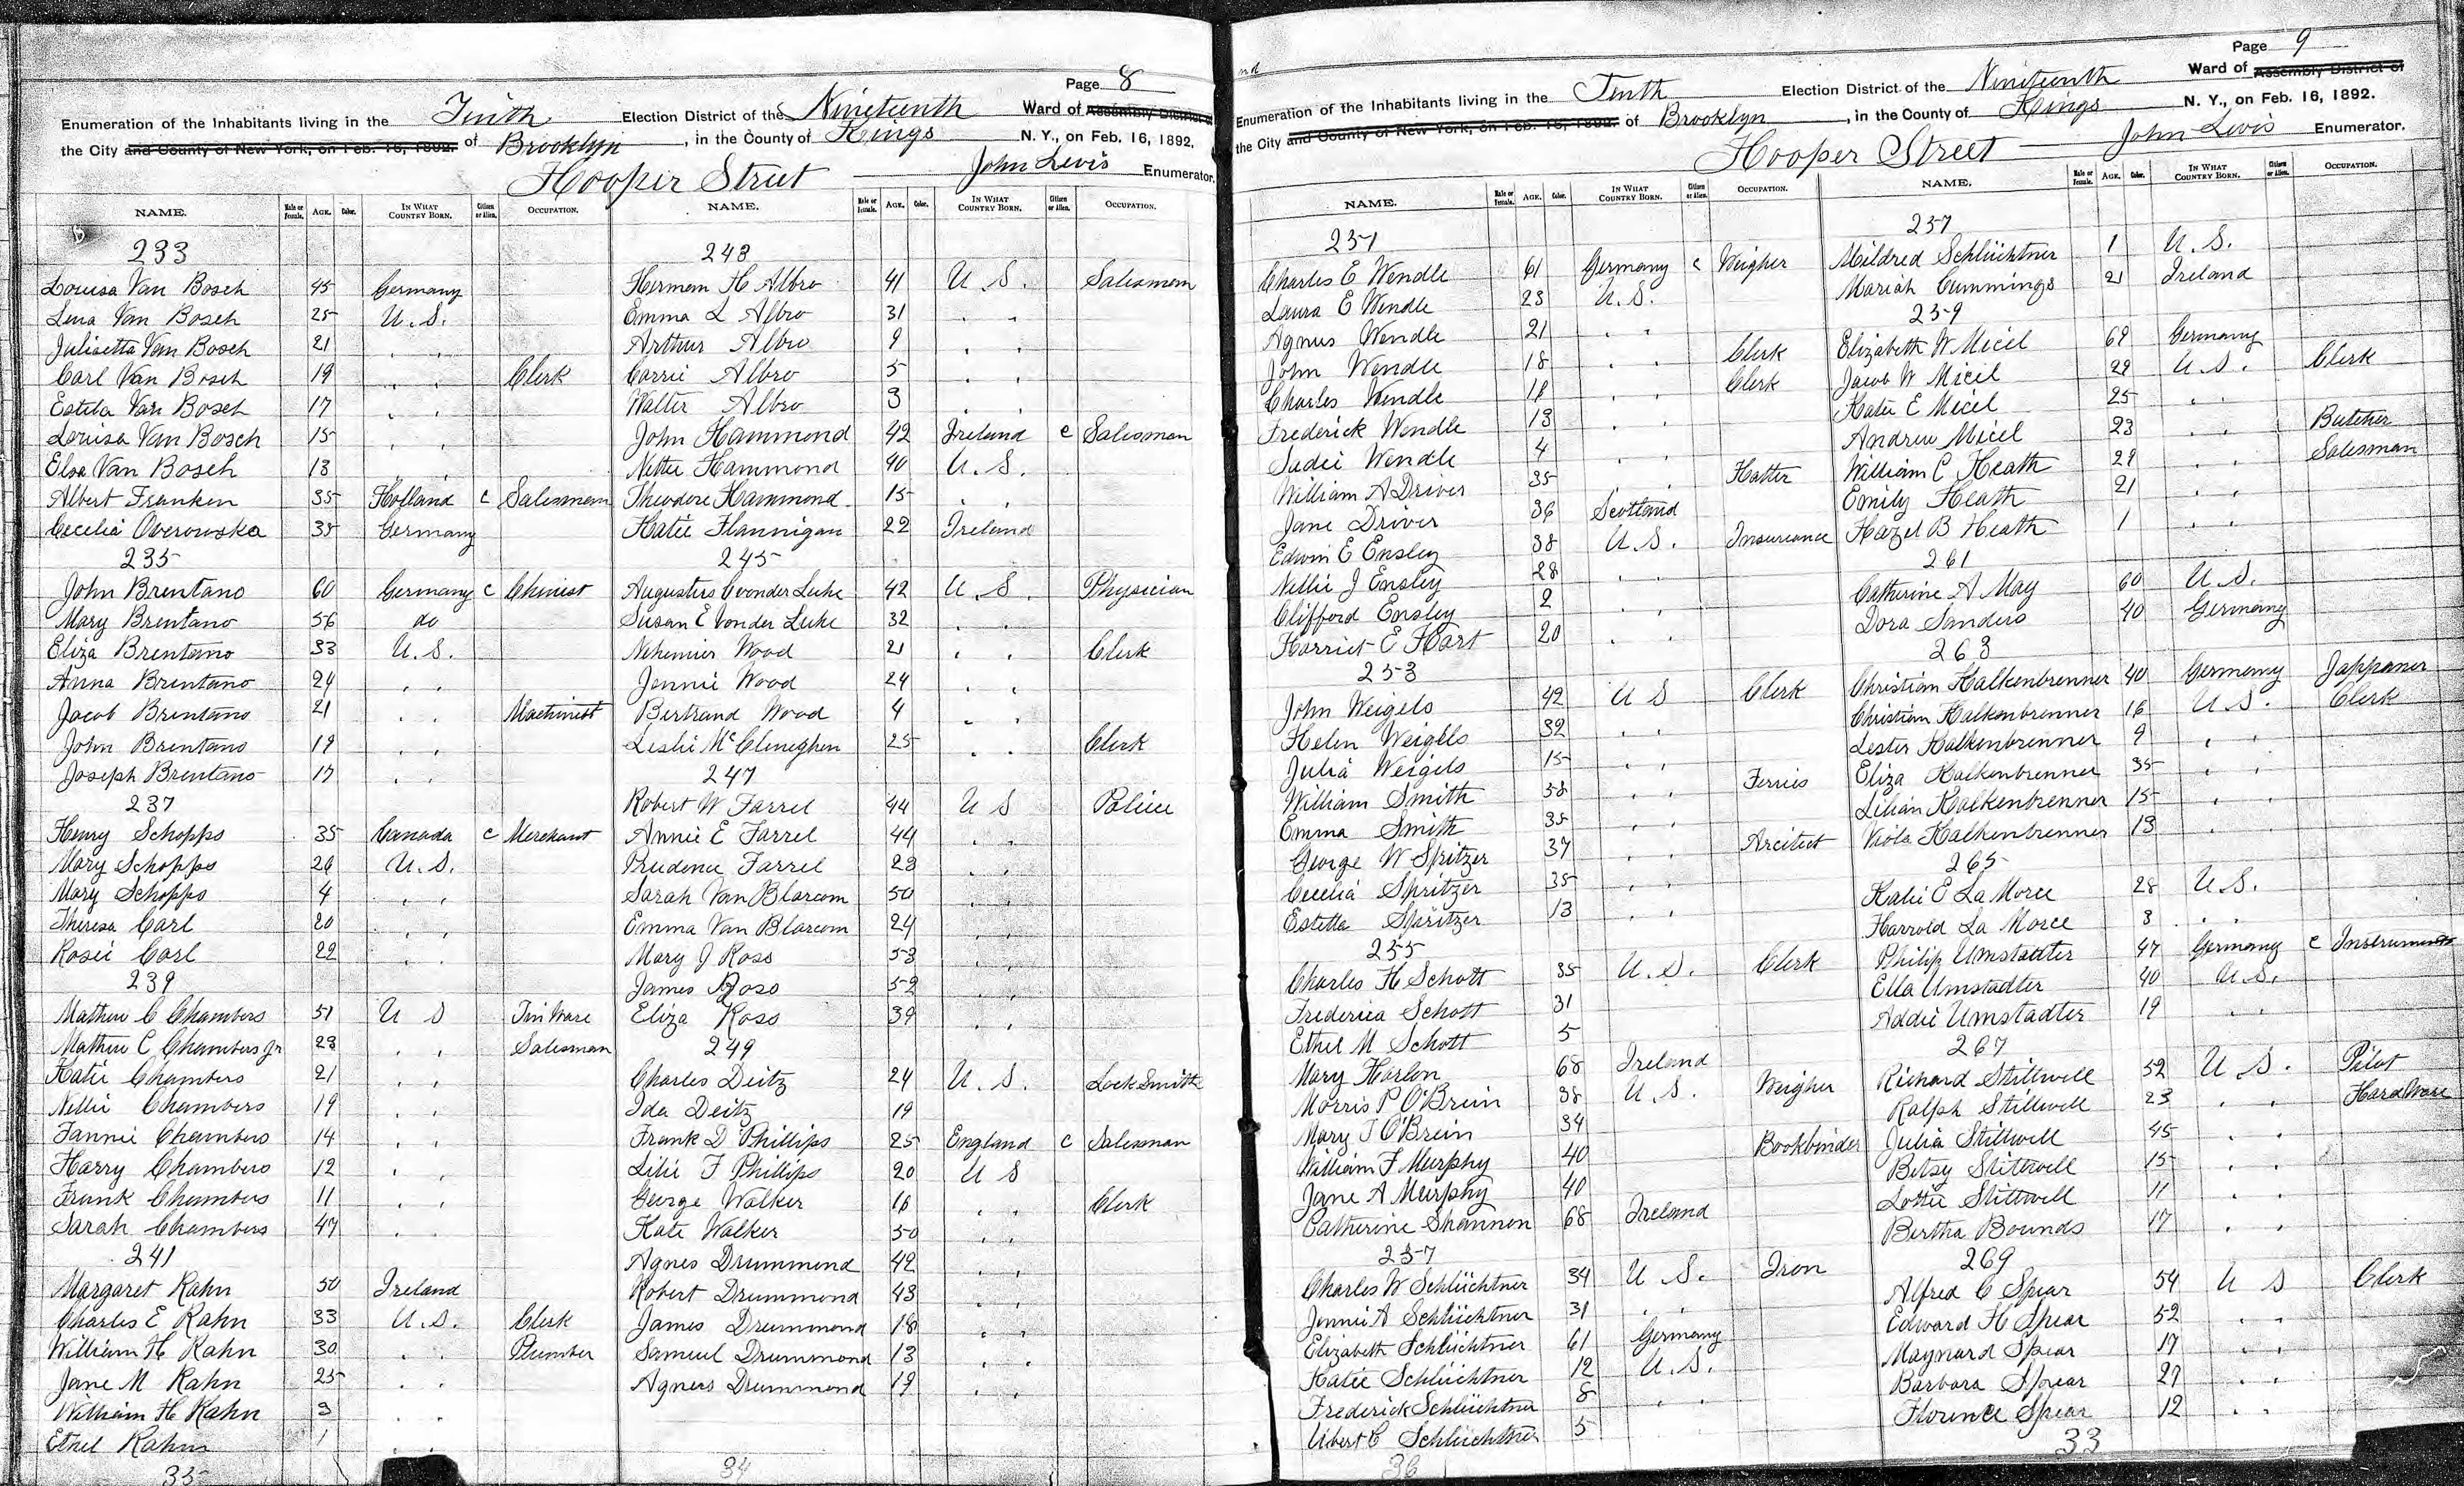 Page 8
Enumeration of the Inhabitants living in the Tinth Election District of the Nineteenth Ward of Assembly District
the City and County of New York, on Feb. 16, 1892. of Brooklyn, in the County of Kings N. Y., on Feb. 16, 1892.
Hooper Street John Lewis Enumerator.
NAME. Male or Female. AGE. Color. IN WHAT COUNTRY BORN. Citizen or Alien. OCCUPATION.
233
Louisa Van Bosch 45 Germany
Lena Van Bosch 25 U.S.
Julisetta Van Bosch 21 " "
Carl Van Bosch 19 " " Clerk
Estela Van Bosch 17 " "
Louisa Van Bosch 15 " "
Elsa Van Bosch 13 " "
Albert Franken 35 Holland c Salesman
Cecelia Overowska 35 Germany
235
John Brentano 60 Germany c Chimist
Mary Brentano 56 do
Eliza Brentano 33 U.S.
Anna Brentano 24 " "
Jacob Brentano 21 " " Machinist
John Brentano 19 " "
Joseph Brentano 17 " "
237
Henry Schopps 35 Canada c Merchant
Mary Schopps 26 U.S.
Mary Schopps 4 " "
Theresa Carl 20 " "
Rosie Carl 22 " "
239
Mathew C Chambers 51 U S Tin Ware
Mathew C Chambers Jr 23 " " Salesman
Katie Chambers 21 " "
Nellie Chambers 19 " "
Fannie Chambers 14 " "
Harry Chambers 12 " "
Frank Chambers 11 " "
Sarah Chambers 47 " "
241
Margaret Rahn 50 Ireland
Charles E Rahn 33 U.S. Clerk
William H Rahn 30 " " Plumber
Jane M Rahn 25 " "
William H Rahn 3 " "
Ethel Rahn 1 " "
35
NAME. Male or Female. AGE. Color. IN WHAT COUNTRY BORN. Citizen or Alien. OCCUPATION.
243
Herman H Albro 41 U.S. Salesman
Emma L Albro 31 " "
Arthur Albro 9 " "
Carrie Albro 5 " "
Walter Albro 3 " "
John Hammond 42 Ireland c Salesman
Nettie Hammond 40 U.S.
Theodore Hammond 15 " "
Katie Flannigan 22 Ireland
245
Augustus C vonder Luhe 42 U.S. Physician
Susan E Vonder Luhe 32 " "
Nehemier Wood 21 " " Clerk
Jennie Wood 24 " "
Bertrand Wood 4 " "
Leslie McCleneghen 25 " " Clerk
247
Robert W Farrel 44 U S Police
Annie E Farrel 44 " "
Prudence Farrel 23 " "
Sarah Van Blarcom 50 " "
Emma Van Blarcom 24 " "
Mary J Ross 53 " "
James Ross 52 " "
Eliza Ross 39 " "
249
Charles Deitz 24 U.S. Lock Smith
Ida Deitz 19
Frank D Phillips 25 England c Salesman
Lilie F Phillips 20 U S
George Walker 16 " " Clerk
Kate Walker 50 " "
Agnes Drummond 42 " "
Robert Drummond 43 " "
James Drummond 18 " "
Samuel Drummond 13 " "
Agners Drummond 19 " "
34
Page 9
Enumeration of the Inhabitants living in the Tenth Election District of the Nineteenth Ward of Assembly District of
the City and County of New York, on Feb. 16, 1892. of Brooklyn, in the County of Kings N. Y., on Feb. 16, 1892.
Hooper Street John Lewis Enumerator.
NAME. Male or Female. AGE. Color. IN WHAT COUNTRY BORN. Citizen or Alien. OCCUPATION.
251
Charles E Wendle 61 Germany c Weigher
Laura E Wendle 23 U.S.
Agnus Wendle 21 " "
John Wendle 18 " " Clerk
Charles Wendle 18 " " Clerk
Frederick Wendle 13 " "
Sadie Wendle 4 " "
William A Driver 35 " " Hatter
Jane Driver 36 Scotland
Edwin E Ensley 38 U.S. Insureance
Nellie J Ensley 28 " "
Clifford Ensley 2 " "
Harriet E Hart 20 " "
253
John Weigels 42 U S Clerk
Helen Weigels 32 " "
Julia Weigels 15 " "
William Smith 58 " " Ferries
Emma Smith 35 " "
George W Spritzer 37 " " Arcitect
Cecelia Spritzer 35 " "
Estella Spritzer 13 " "
255
Charles H Schott 35 U.S. Clerk
Frederica Schott 31
Ethel M Schott 5
Mary Harlon 68 Ireland
Morris P O'Brein 38 U.S. Weigher
Mary T O'Brein 34
William F Murphy 40 Bookbinder
Jane A Murphy 40
Catherine Shannon 68 Ireland
257
Charles W Schlüchtner 34 U.S. Iron
Jennie A Schlüchtner 31 " "
Elizabeth Schlüchtner 61 Germany
Katie Schlüchtner 12 U.S.
Frederick Schlüchtner 8 " "
Albert C Schlüchtner 5
36
NAME. Male or Female. AGE. Color. IN WHAT COUNTRY BORN. Citizen or Alien. OCCUPATION.
257
Mildred Schlüchtner 1 U.S.
Mariah Cummings 21 Ireland
259
Elizabeth W Micel 69 Germany
Jacob W Micel 29 U.S. Clerk
Katie E Micel 25 " "
Andrew Micel 23 " " Butcher
William C Heath 29 " " Salesman
Emily Heath 21 " "
Hazel B Heath 1 " "
261
Catherine A May 60 U.S.
Dora Sanders 40 Germany
263
Christian Kalkenbrenner 40 Germany Jappaner
Christian Kalkenbrenner 16 U.S. Clerk
Lester Kalkenbrenner 9 " "
Eliza Kalkenbrenner 35 " "
Lilian Kalkenbrenner 15 " "
Viola Kalkenbrenner 13 "
265
Katie E La Morce 28 U.S.
Harrold La Morce 3 " "
Philip Umstadter 47 Germany c Instruments
Ella Umstadter 40 U.S.
Addie Umstadter 19 " "
267
Richard Stillwell 52 U.S. Pilot
Ralph Stillwell 23 " " Hard Ware
Julia Stillwell 45 " "
Betsy Stillwell 15 " "
Lottie Stillwell 11 " "
Bertha Bounds 17 " "
269
Alfred C Spear 54 U S Clerk
Edward H Spear 52 " "
Maynard Spear 17 " "
Barbara Spear 27 " "
Florence Spear 12 " "
33